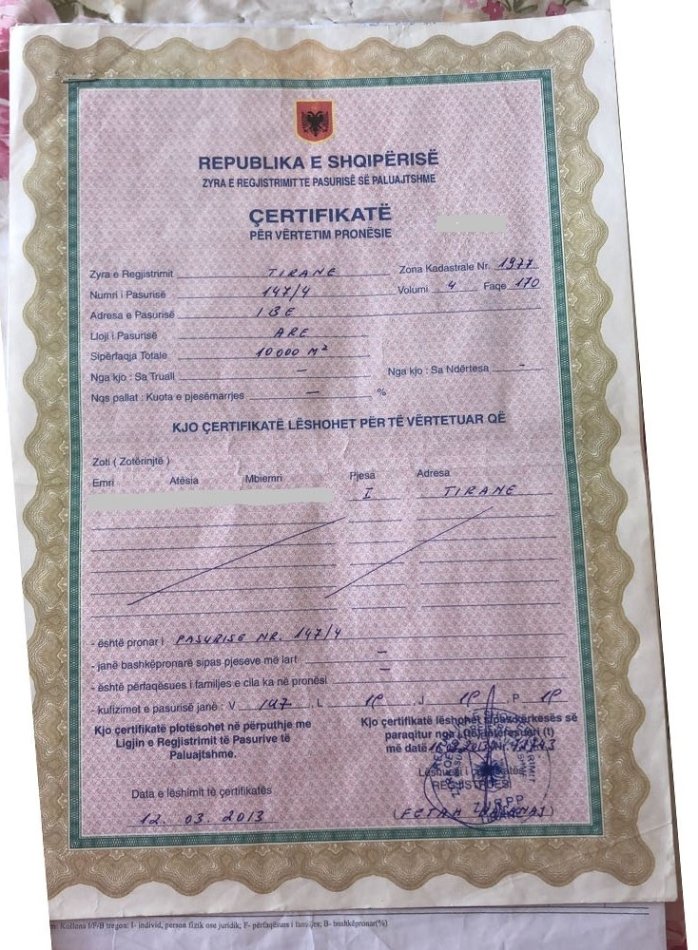 REPUBLIKA E SHQIPËRISË
ZYRA E REGJISTRIMIT TE PASURISË SË PALUAJTSHME
ÇERTIFIKATË
PËR VËRTETIM PRONËSIE
Zyra e Regjistrimit TIRANE Zona Kadastrale Nr. 1977
Numri i Pasurisë 147/4 Volumi 4 Faqe 170
Adresa e Pasurisë IBE
Lloji i Pasurisë ARE
Sipërfaqja Totale 10000 M²
Nga kjo : Sa Truall – Nga kjo : Sa Ndërtesa -
Nqs pallat : Kuota e pjesëmarrjes – %
KJO ÇERTIFIKATË LËSHOHET PËR TË VËRTETUAR QË
Zoti ( Zotërinjtë )
Emri Atësia Mbiemri Pjesa Adresa
I TIRANE
- është pronar i PASURISE NR. 147/4
- janë bashkëpronarë sipas pjeseve më lart –
- është përfaqësues i familjes e cila ka në pronësi –
- kufizimet e pasurisë janë : V 147 . L 1P . J 1P . P 1P
Kjo çertifikatë plotësohet në përputhje me
Ligjin e Regjistrimit të Pasurive të
Paluajtshme.
Kjo çertifikatë lëshohet sipas kërkesës së
paraqitur nga i (e) interesuari (t)
më datë Nr.
Data e lëshimit të çertifikatës
12. 03. 2013
REGJISTRUESI
Kollona I/P/B tregon: I- individ, person fizik ose juridik; F- përfaqësues i familjes; B- bashkëpronar(%)